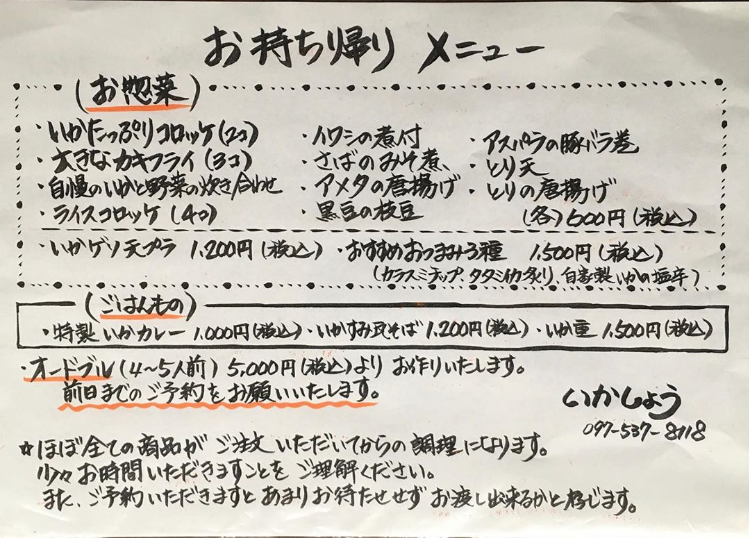 お持ち帰り メニュー
(お惣菜)
・いかたっぷりコロッケ(2コ)
・大きなカキフライ(3コ)
・自慢のいかと野菜の炊き合わせ
・ライスコロッケ(4コ)
・イワシの煮付
・さばのみそ煮
・アメタの唐揚げ
・黒豆の枝豆
・アスパラの豚バラ巻
・とり天
・とりの唐揚げ
(各)600円(税込)
・いかゲソ天プラ 1,200円(税込) ・おすすめおつまみ3種 1,500円(税込)
(カラスミチップ、タタミイカ炙り、自家製いかの塩辛)
(ごはんもの)
・特製いかカレー 1,000円(税込)・いかすみ瓦そば 1,200円(税込)・いか重 1,500円(税込)
・オードブル(4〜5人前) 5,000円(税込)より お作りいたします。
前日までのご予約をお願いいたします。
いかしょう
097-537-8118
☆ほぼ全ての商品が ご注文いただいてからの調理になります。
少々お時間いただきますことを ご理解ください。
また、ご予約いただきますと あまりお待たせせず お渡し出来るかと存じます。